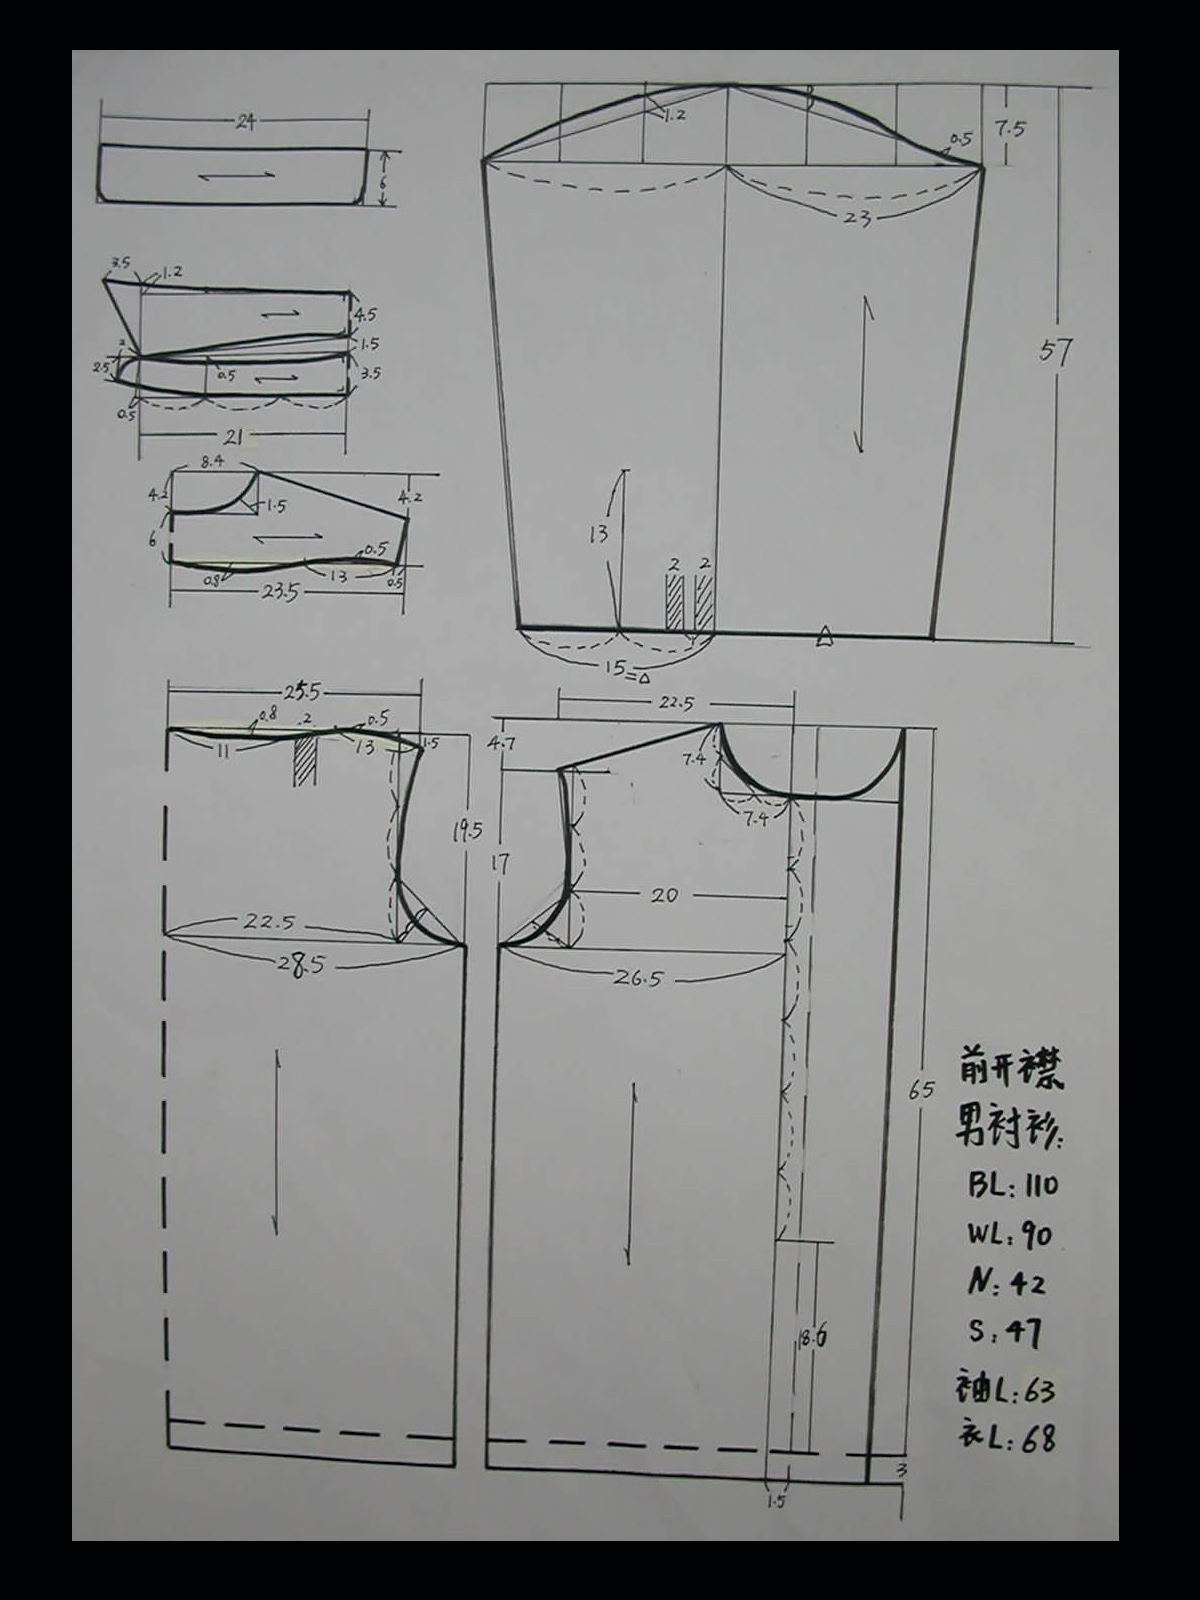 24
6
3.5
1.2
4.5
2
1.5
2.5
0.5
3.5
0.5
21
8.4
4.2
1.5
4.2
6
0.5
0.8
13
0.5
23.5
1.2
0.5
7.5
23
57
13
2
2
15=△
△
25.5
0.8
2
0.5
11
13
1.5
19.5
22.5
28.5
22.5
4.7
7.4
7.4
17
20
26.5
65
18.6
3
1.5
前开襟
男衬衫:
BL:110
WL:90
N:42
S:47
袖L:63
衣L:68